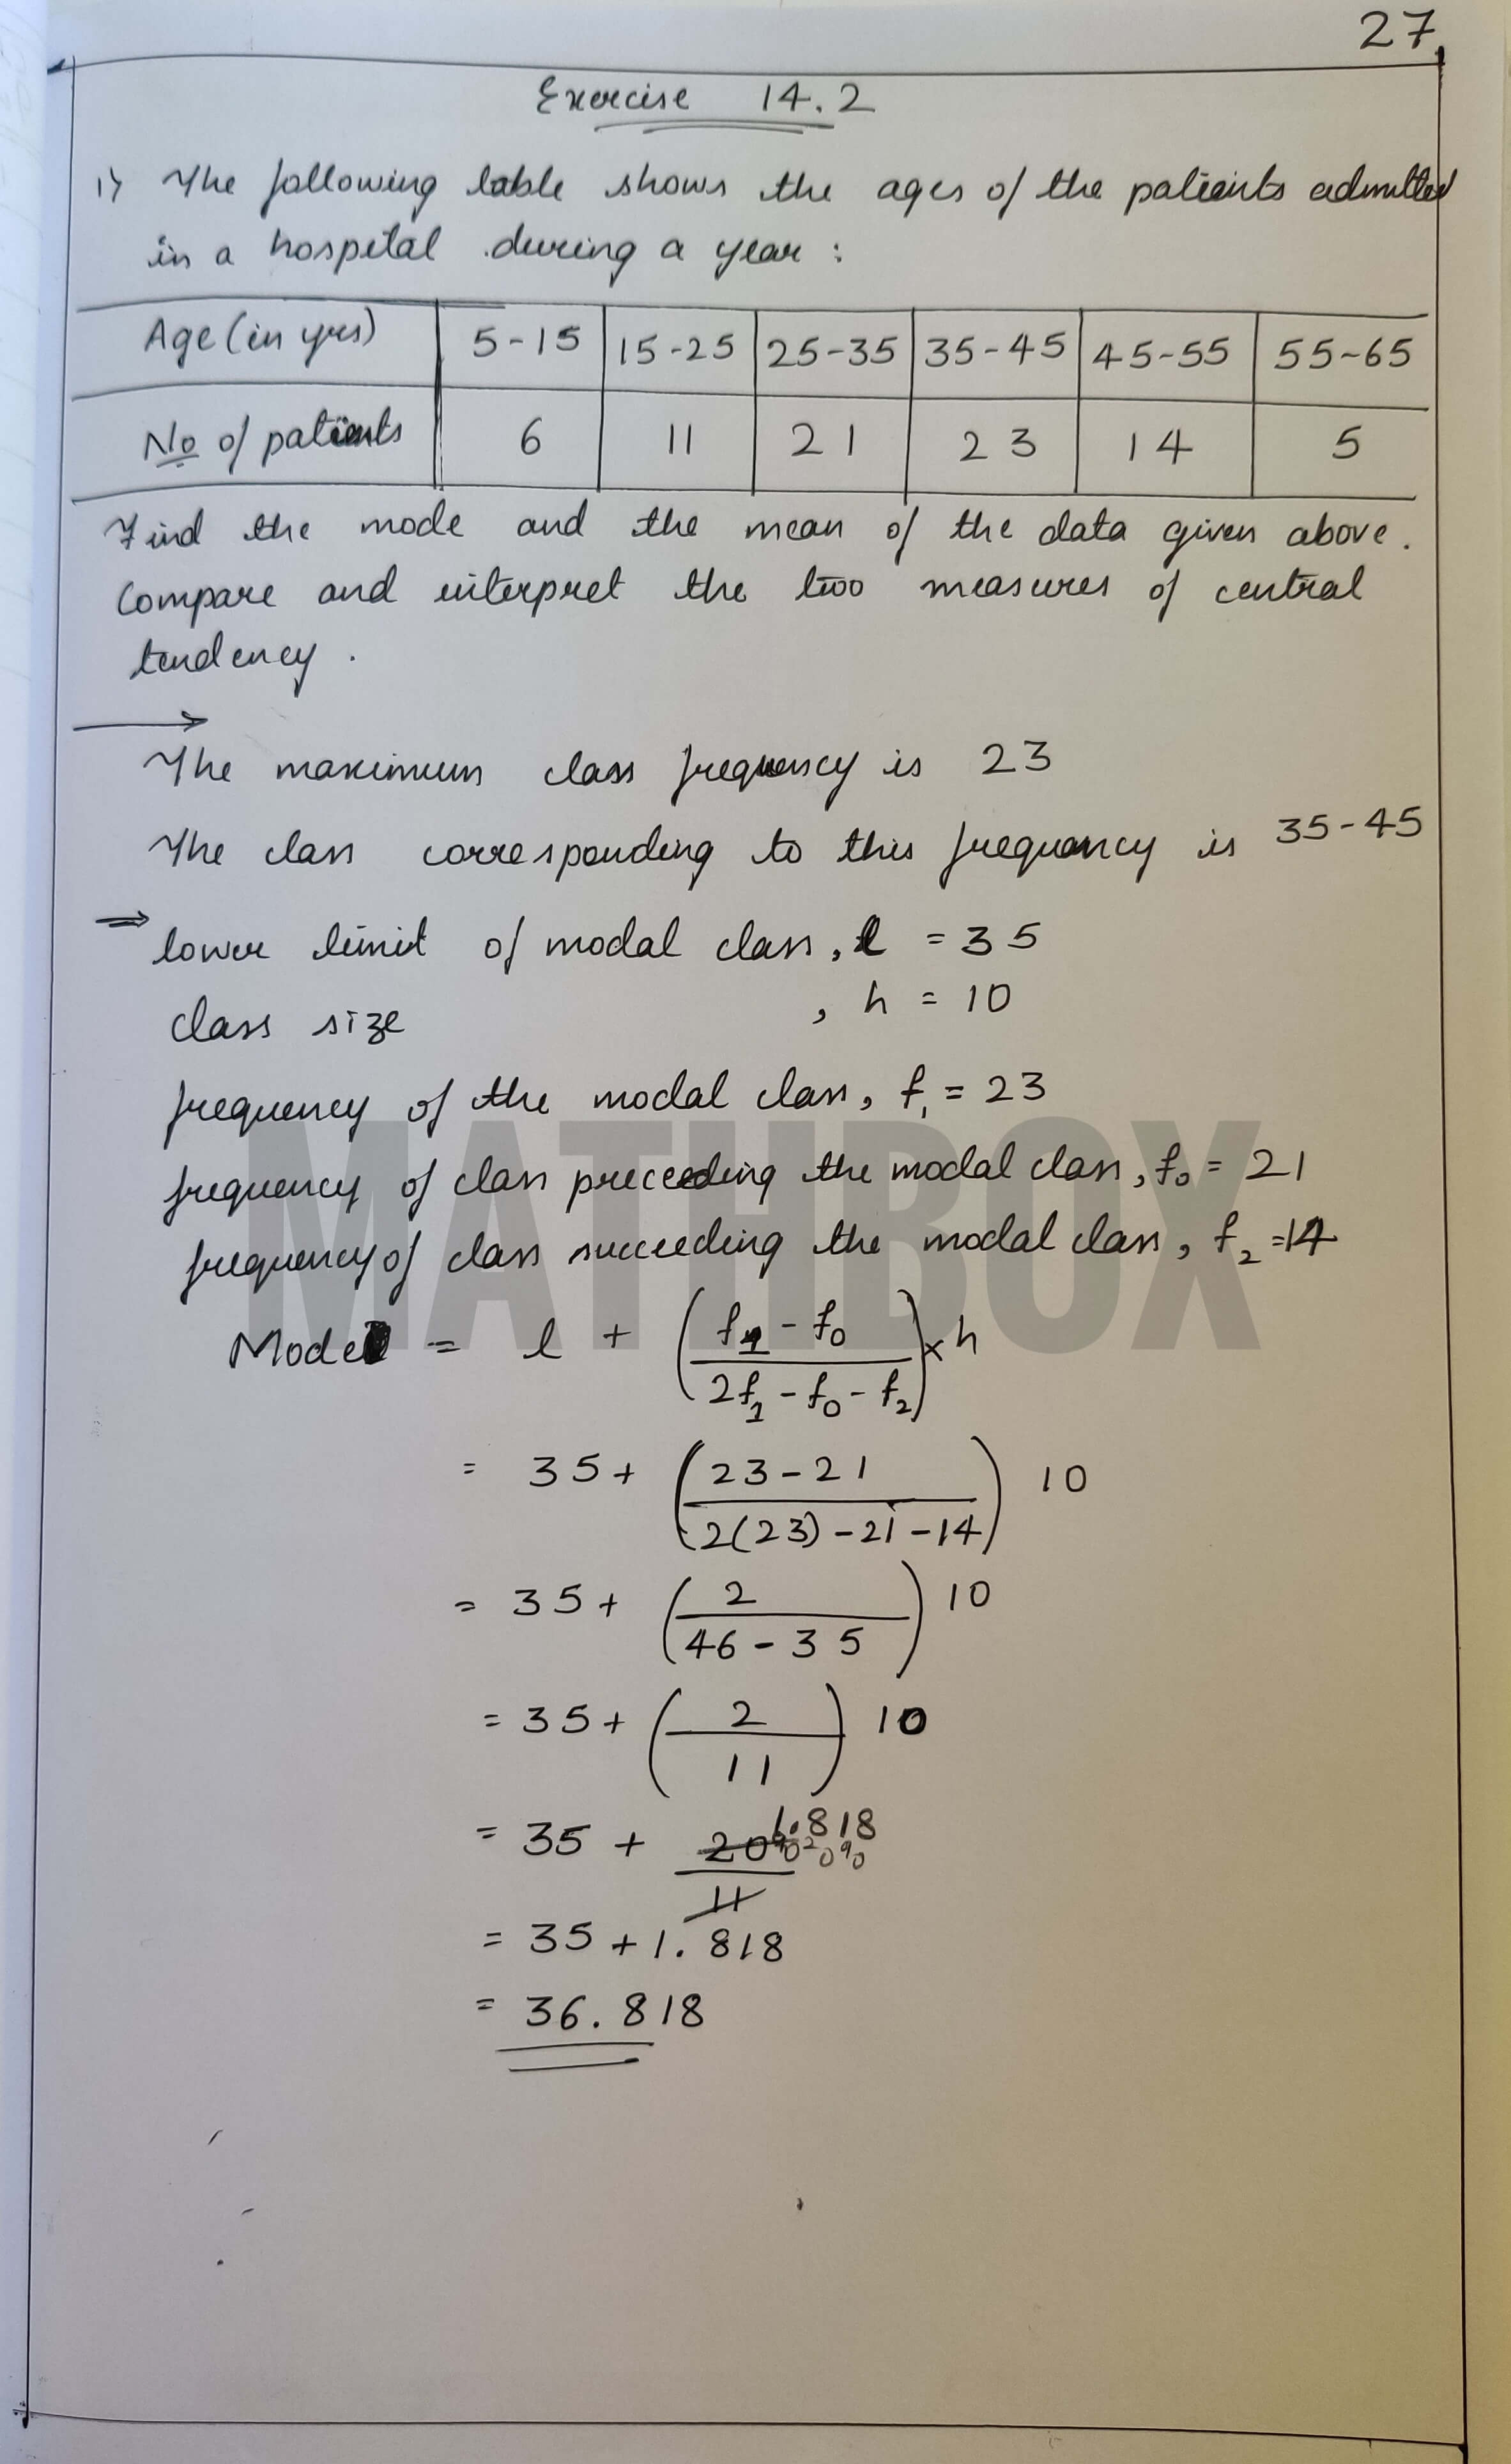 27
Exercise 14.2
1) The following table shows the ages of the patients admitted
in a hospital during a year :
Age (in yrs) 5-15 15-25 25-35 35-45 45-55 55-65
No of patients 6 11 21 23 14 5
Find the mode and the mean of the data given above.
Compare and interpret the two measures of central
tendency.
→
The maximum class frequency is 23
The class corresponding to this frequency is 35-45
⇒ lower limit of modal class, l = 35
class size , h = 10
frequency of the modal class, f₁ = 23
frequency of class preceeding the modal class, f₀ = 21
frequency of class succeeding the modal class, f₂ = 14
MATHBOX
Mode = l + (f₁ - f₀ / 2f₁ - f₀ - f₂) × h
= 35 + (23 - 21 / 2(23) - 21 - 14) 10
= 35 + (2 / 46 - 35) 10
= 35 + (2 / 11) 10
= 35 + 20 / 11 1.818
= 35 + 1.818
= 36.818